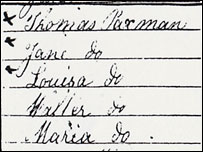 x Thomas Parman
x Jane do
x Louisa do
Walter do
Maria do